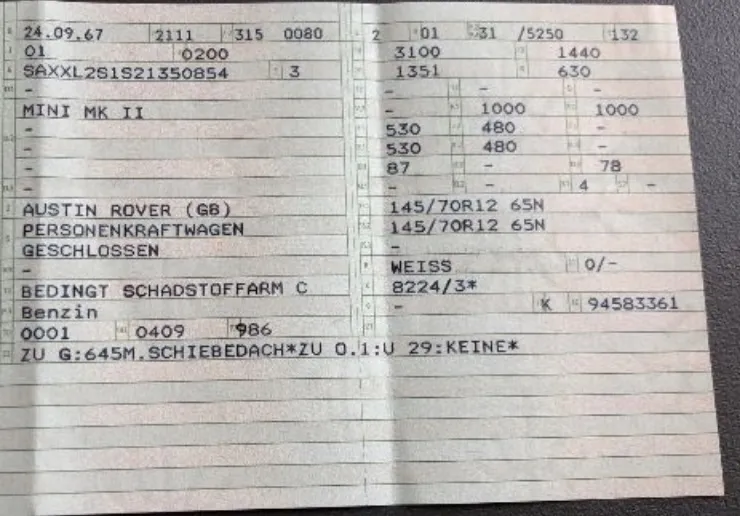 24.09.67 2111 315 0080 2 01 31 /5250 132
01 0200 3100 1440
SAXXL2S1S21350854 3 1351 630
- - - -
MINI MK II - 1000 1000
- 530 480 -
- 530 480 -
- 87 - 78
- - - 4 -
AUSTIN ROVER (GB) 145/70R12 65N
PERSONENKRAFTWAGEN 145/70R12 65N
GESCHLOSSEN -
- WEISS 0/-
BEDINGT SCHADSTOFFARM C 8224/3*
Benzin - K 94583361
0001 0409 986
ZU G:645M.SCHIEBEDACH*ZU O.1:U 29:KEINE*